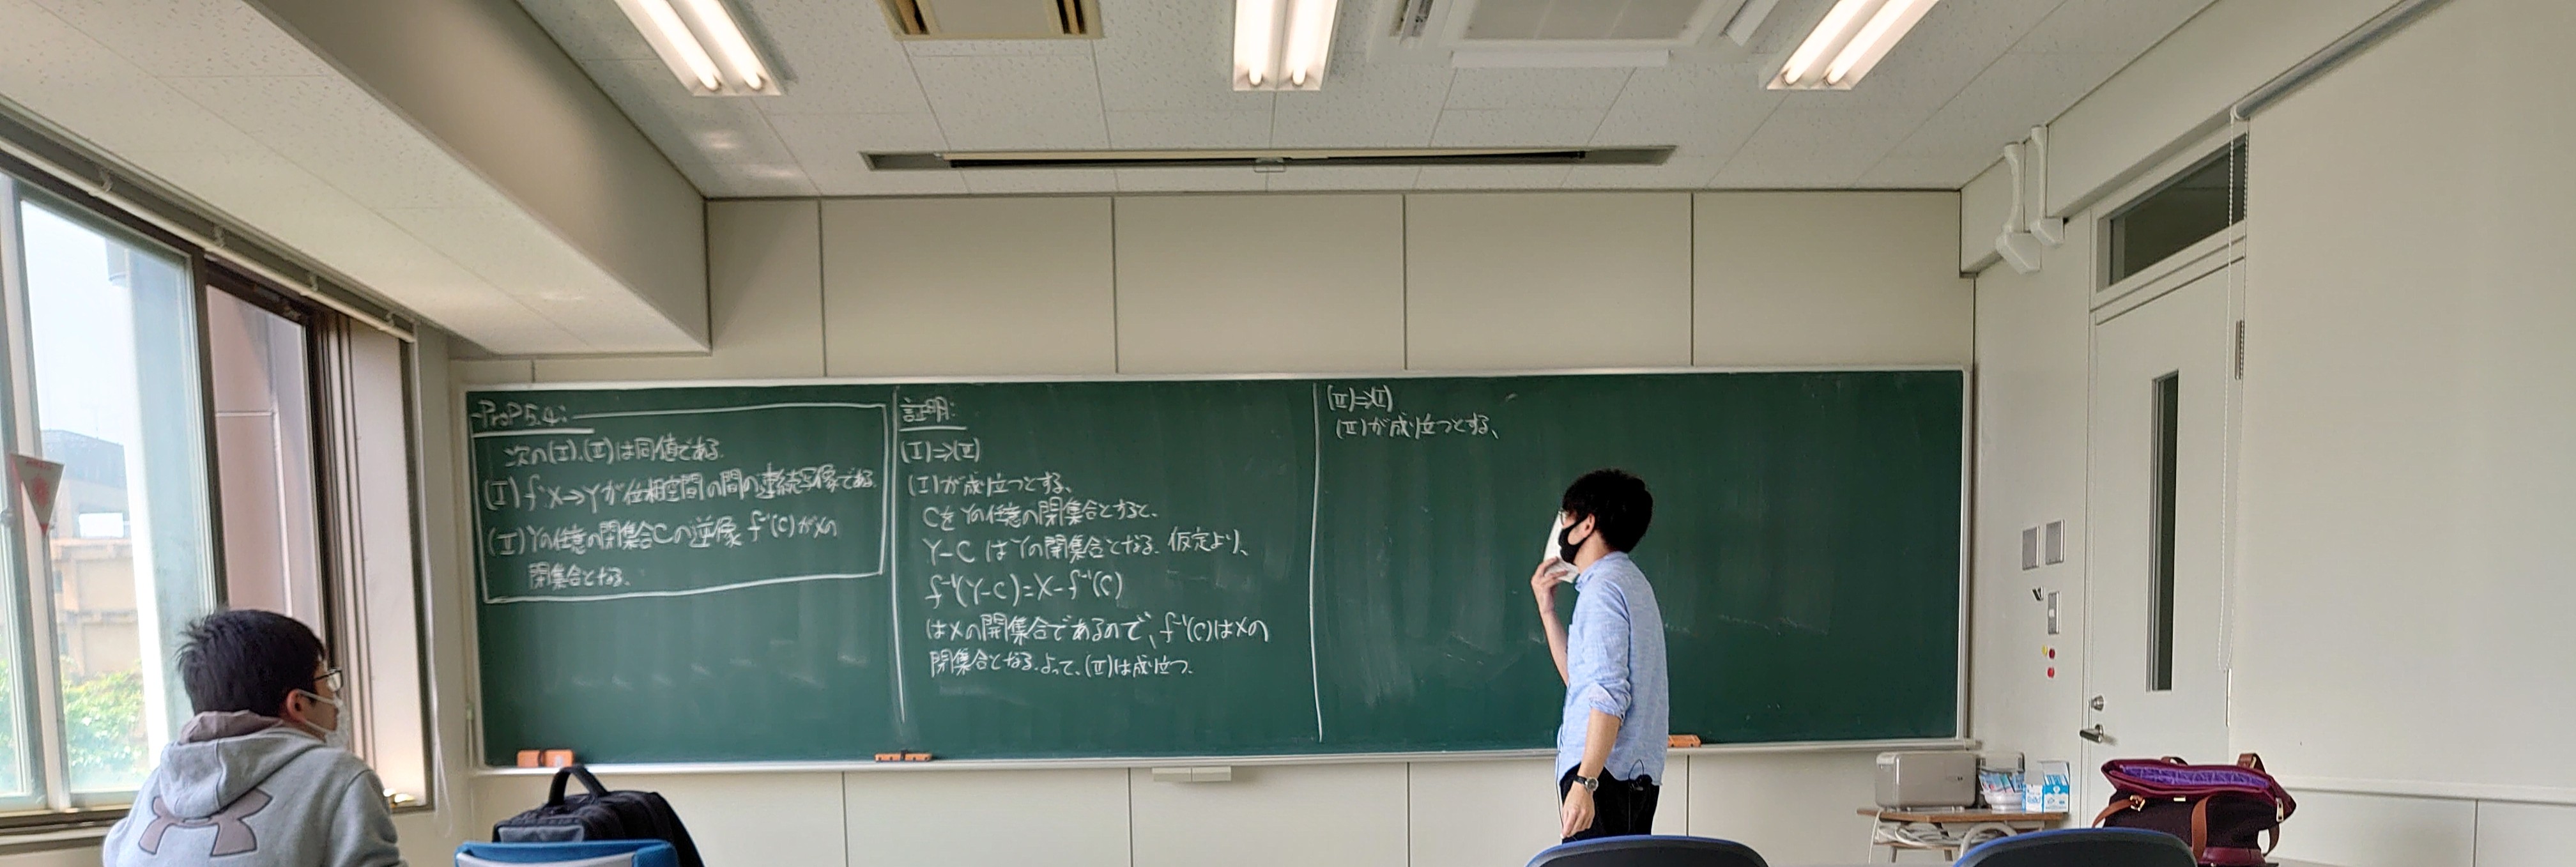 Prop 5.4:
次の(I)、(II)は同値である。
(I) f:X→Yが位相空間の間の連続写像である。
(II) Yの任意の閉集合Cの逆像 f⁻¹(C)がXの
閉集合となる。
証明:
(I)⇒(II)
(I)が成り立つとする、
CをYの任意の閉集合とすると、
Y-C はYの開集合となる。仮定より、
f⁻¹(Y-C)=X-f⁻¹(C)
はXの開集合であるので、f⁻¹(C)はXの
閉集合となる。よって、(II)は成り立つ。
(II)⇒(I)
(II)が成り立つとする、